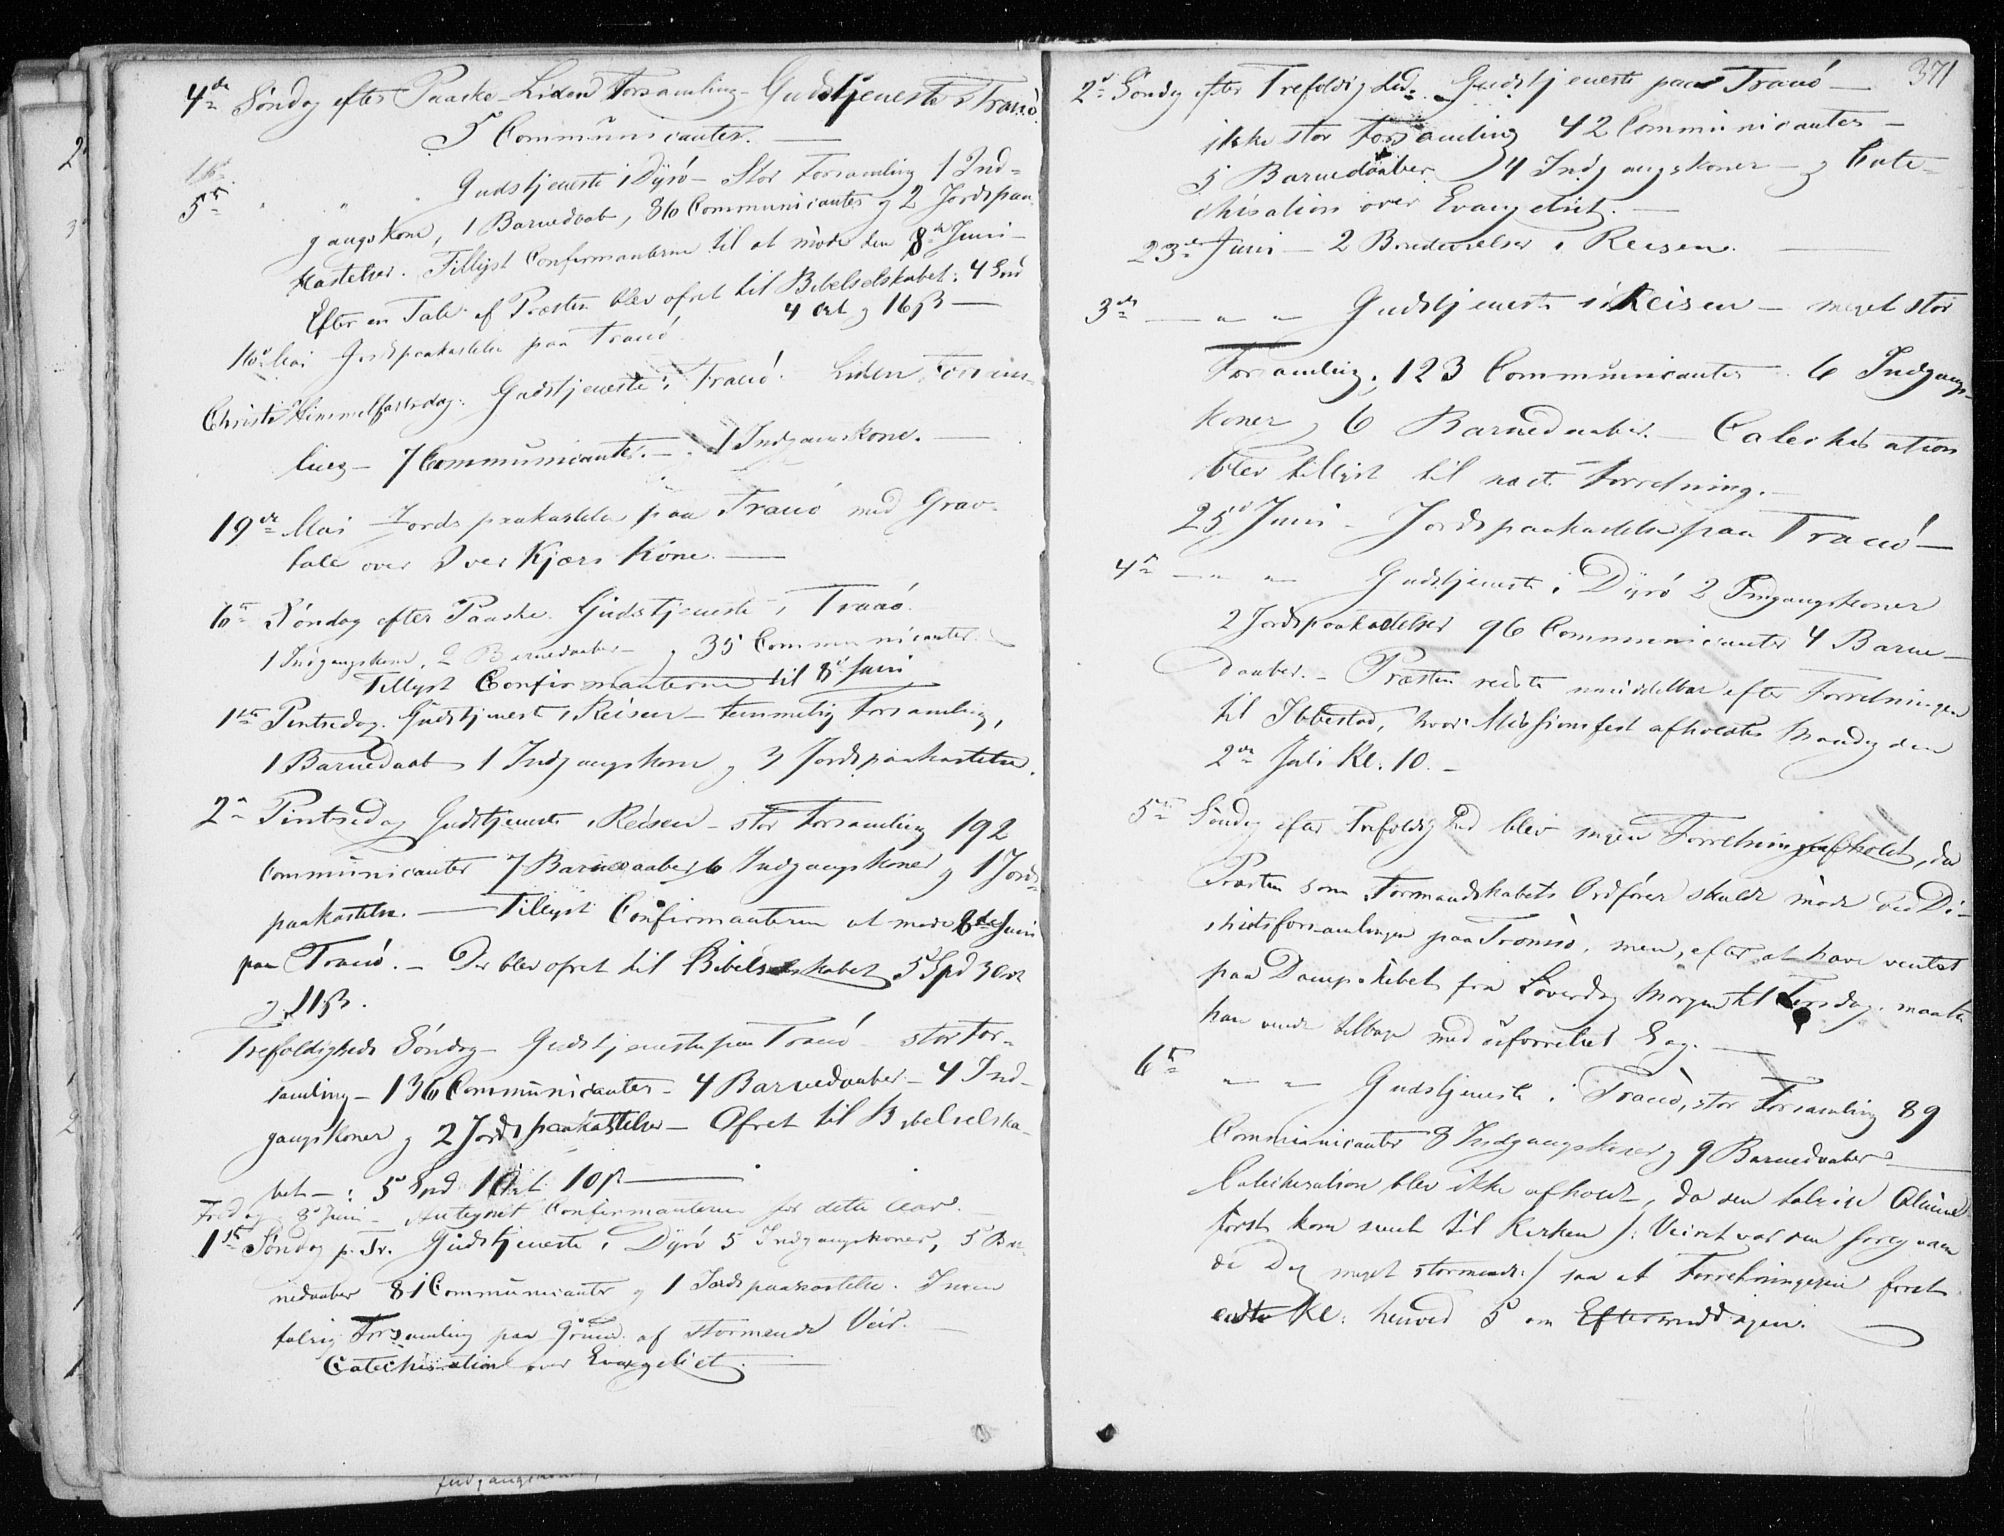 4de Søndag efter Paaske - Liden Forsamling - Gudstjeneste i Tranö.
5 Communicanter. —
5te " " Gudstjeneste i Dyrö - Stor Forsamling 1 Ind-
gangskone, 1 Barnedaab, 86 Communicanter og 2 Jordspaa-
kastelser. Tillyst Confirmanterne til at möde den 8de Juni -
Efter en Tale af Præsten blev ofret til Bibelselskabet: 4 Spd
4 Ort og 16 ß —
16de Mai Jordspaakastelse paa Tranö.
Christi Himmelfartsdag. Gudstjeneste i Tranö. Liden Forsam-
ling - 7 Communicanter. - 1 Indgangskone. —
19de Mai Jordspaakastelse paa Tranö med Grav-
tale over Iver Kjærs Kone. —
6te Söndag efter Paaske. Gudstjeneste i Tranö.
1 Indgangskone, 2 Barnedaaber - og 35 Communicanter.
Tillyst Confirmanterne til 8de Juni
1ste Pintsedag. Gudstjeneste i Reisen - temmelig Forsamling,
1 Barnedaab 1 Indgangskone og 3 Jordspaakastelse.
2den Pintsedag Gudstjeneste i Reisen - stor Forsamling 192
Communicanter 7 Barnedaaber 6 Indgangskoner og 1 Jords-
paakastelse. — Tillyst Confirmanterne at møde 8de Juni
paa Tranö. - Der blev ofret til Bibelselskabet 5 Spd 3 Ort
og 11 ß.
Trefoldigheds Söndag - Gudstjeneste paa Tranö - stor For-
samling - 136 Communicanter - 4 Barnedaaber - 4 Ind-
gangskoner og 2 Jordspaakastelser - Ofret til Bibelselska-
bet - : 5 Spd 1 Ort 10 ß —
Fredag 8de Juni - Antegnet Confirmanterne for dette Aar. -
1ste Søndag p. Tr. Gudstjeneste i Dyrö 5 Indgangskoner, 5 Bar-
nedaaber 81 Communicanter og 1 Jordspaakastelse. Ingen
talrig Forsamling paa Grund af stormende Veir. —
Catechisation over Evangeliet. —
371
2den Søndag efter Trefoldighed. Gudstjeneste paa Tranö —
ikke stor Forsamling 42 Communicanter -
5 Barnedaaber 4 Indgangskoner - og Cate-
chisation over Evangeliet. —
23de Juni - 2 Brudevielser i Reisen. —
3die — " " Gudstjeneste i Reisen - meget stor
Forsamling; 123 Communicanter. 6 Indgangs-
koner og 6 Barnedaaber. - Catechisation
blev tillyst til næste Forretning. -
25de Juni - Jordspaakastelse paa Tranö —
4de — " " Gudstjeneste i Dyrö 2 Indgangskoner
2 Jordspaakastelser 96 Communicanter 4 Barne-
daaber. - Præsten reiste umiddelbar efter Forretningen
til Ibbestad, hvor Missionsfest afholdtes Mandag den
2den Juli Kl. 10. -
5te Søndag efter Trefoldighed blev ingen Forretning afholdt, da
Præsten som Formandskabets Ordförer skulde möde ved Di-
striktsforsamlingen paa Tromsö, men, efter at have ventet
paa Dampskibet fra Löverdag Morgen til Tirsdag, maatte
han vende tilbage med uforrettet Sag. —
6te " " Gudstjeneste i Tranö, stor Forsamling 89
Communicanter 8 Indgangskoner og 9 Barnedaaber —
Catechisation blev ikke afholdt, da den talrige Almue
først kom sent til Kirken /: Veiret var den foregaaen-
de Dag meget stormende :/ saa at Forretningerne först
endte Kl: henved 5 om Eftermiddagen.